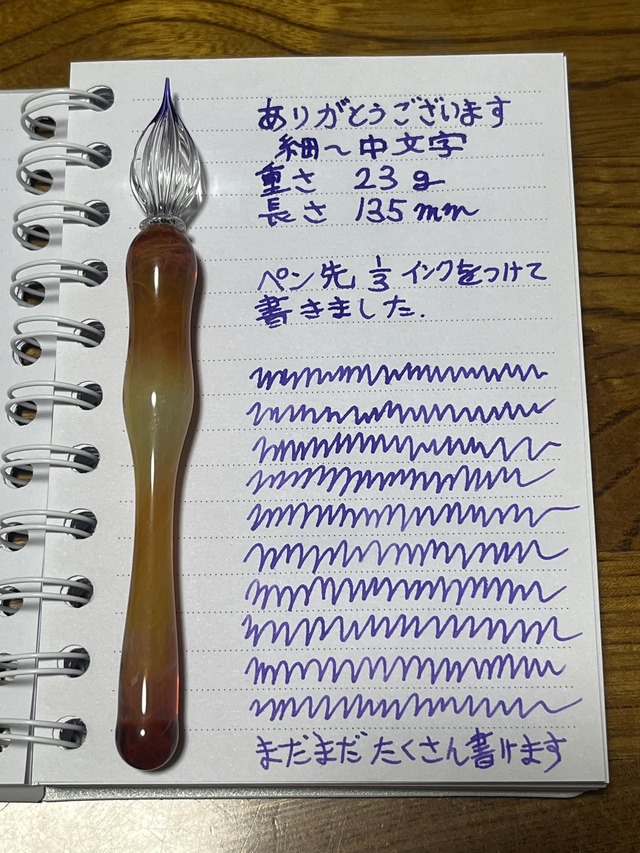 ありがとうございます
細～中文字
重さ 23g
長さ 135mm
ペン先 1/3 インクをつけて
書きました.
まだまだたくさん書けます